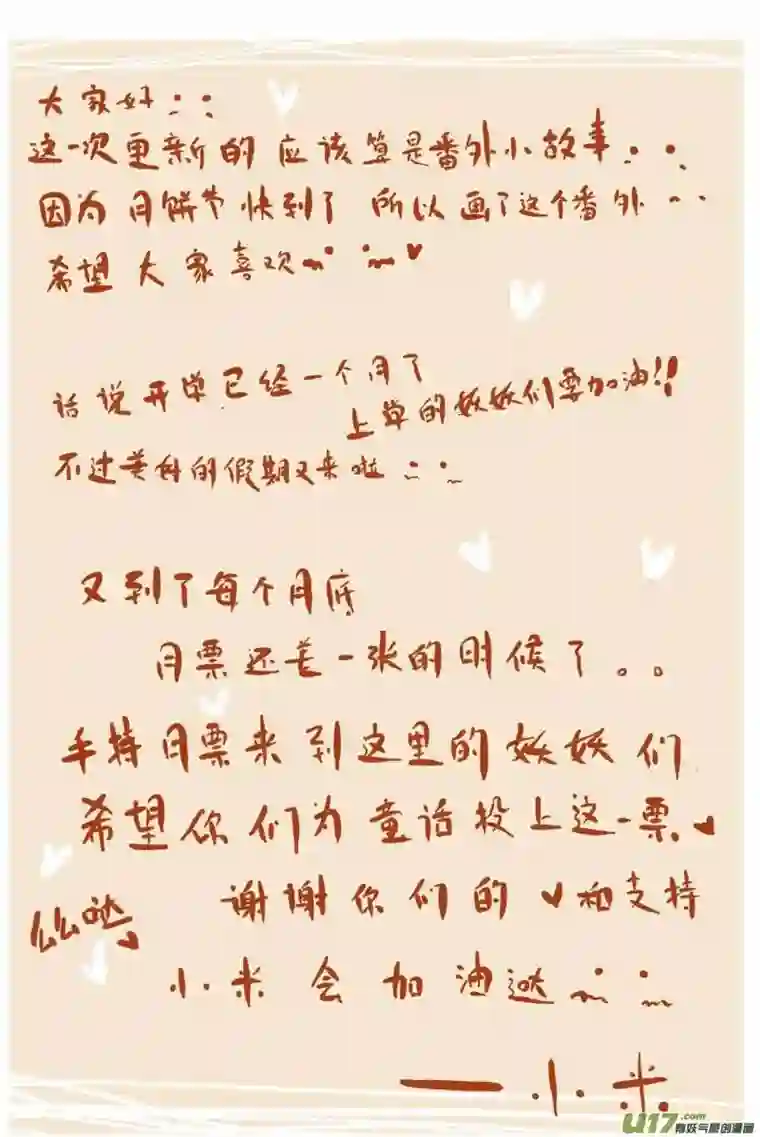 大家好：：
这一次更新的应该算是番外小故事：：
因为月饼节快到了 所以画了这个番外
希望大家喜欢~ ♥
话说开学已经一个月了
上学的妖妖们要加油!!
不过美好的假期又来啦
又到了每个月底
月票还差一张的时候了。。
手持月票来到这里的妖妖们
希望你们为童话投上这一票♥
么么哒♥
谢谢你们的♥和支持
小米会加油哒
——小米
U17.com
有妖气原创漫画